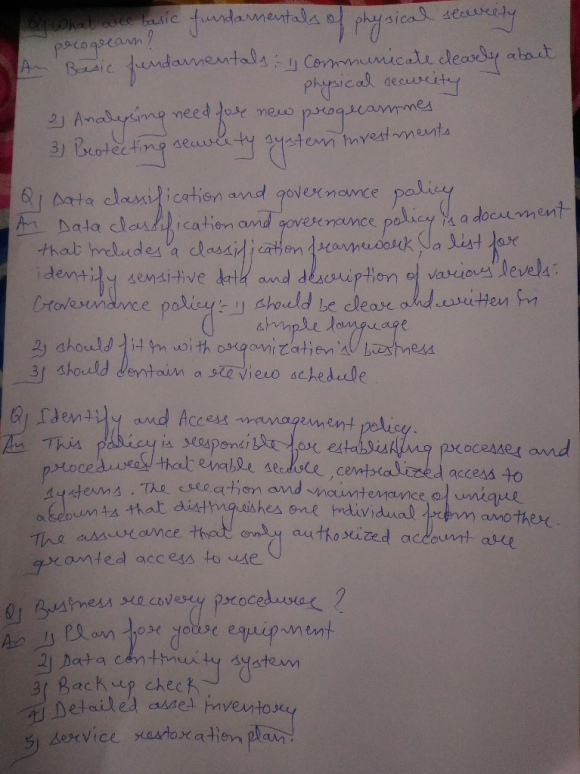 Q) What are basic fundamentals of physical security
program?
An Basic fundamentals:- 1) Communicate clearly about
physical security
2) Analysing need for new programmes
3) Protecting security system investments
Q) Data classification and governance policy
An Data classification and governance policy is a document
that includes a classification framework, a list for
identify sensitive data and description of various levels:
Governance policy:- 1) should be clear and written in
simple language
2) should fit in with organization's business
3) should contain a review schedule.
Q) Identify and Access management policy.
An This policy is responsible for establishing processes and
procedures that enable secure, centralized access to
systems. The creation and maintenance of unique
accounts that distinguishes one individual from another.
The assurance that only authorized account are
granted access to use
Q) Business recovery procedures?
An 1) Plan for your equipment
2) Data continuity system
3) Back up check
4) Detailed asset inventory
5) Service restoration plan.